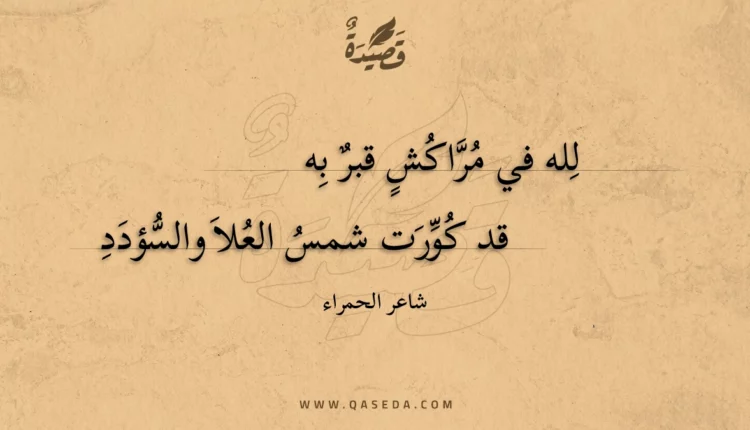 قَصِيْدَةٌ
لِله في مُرَّاكُشٍ قبرٌ بِه
قد كُوِّرَت شمسُ العُلاَ والسُّؤدَدِ
شاعر الحمراء
WWW.QASEDA.COM